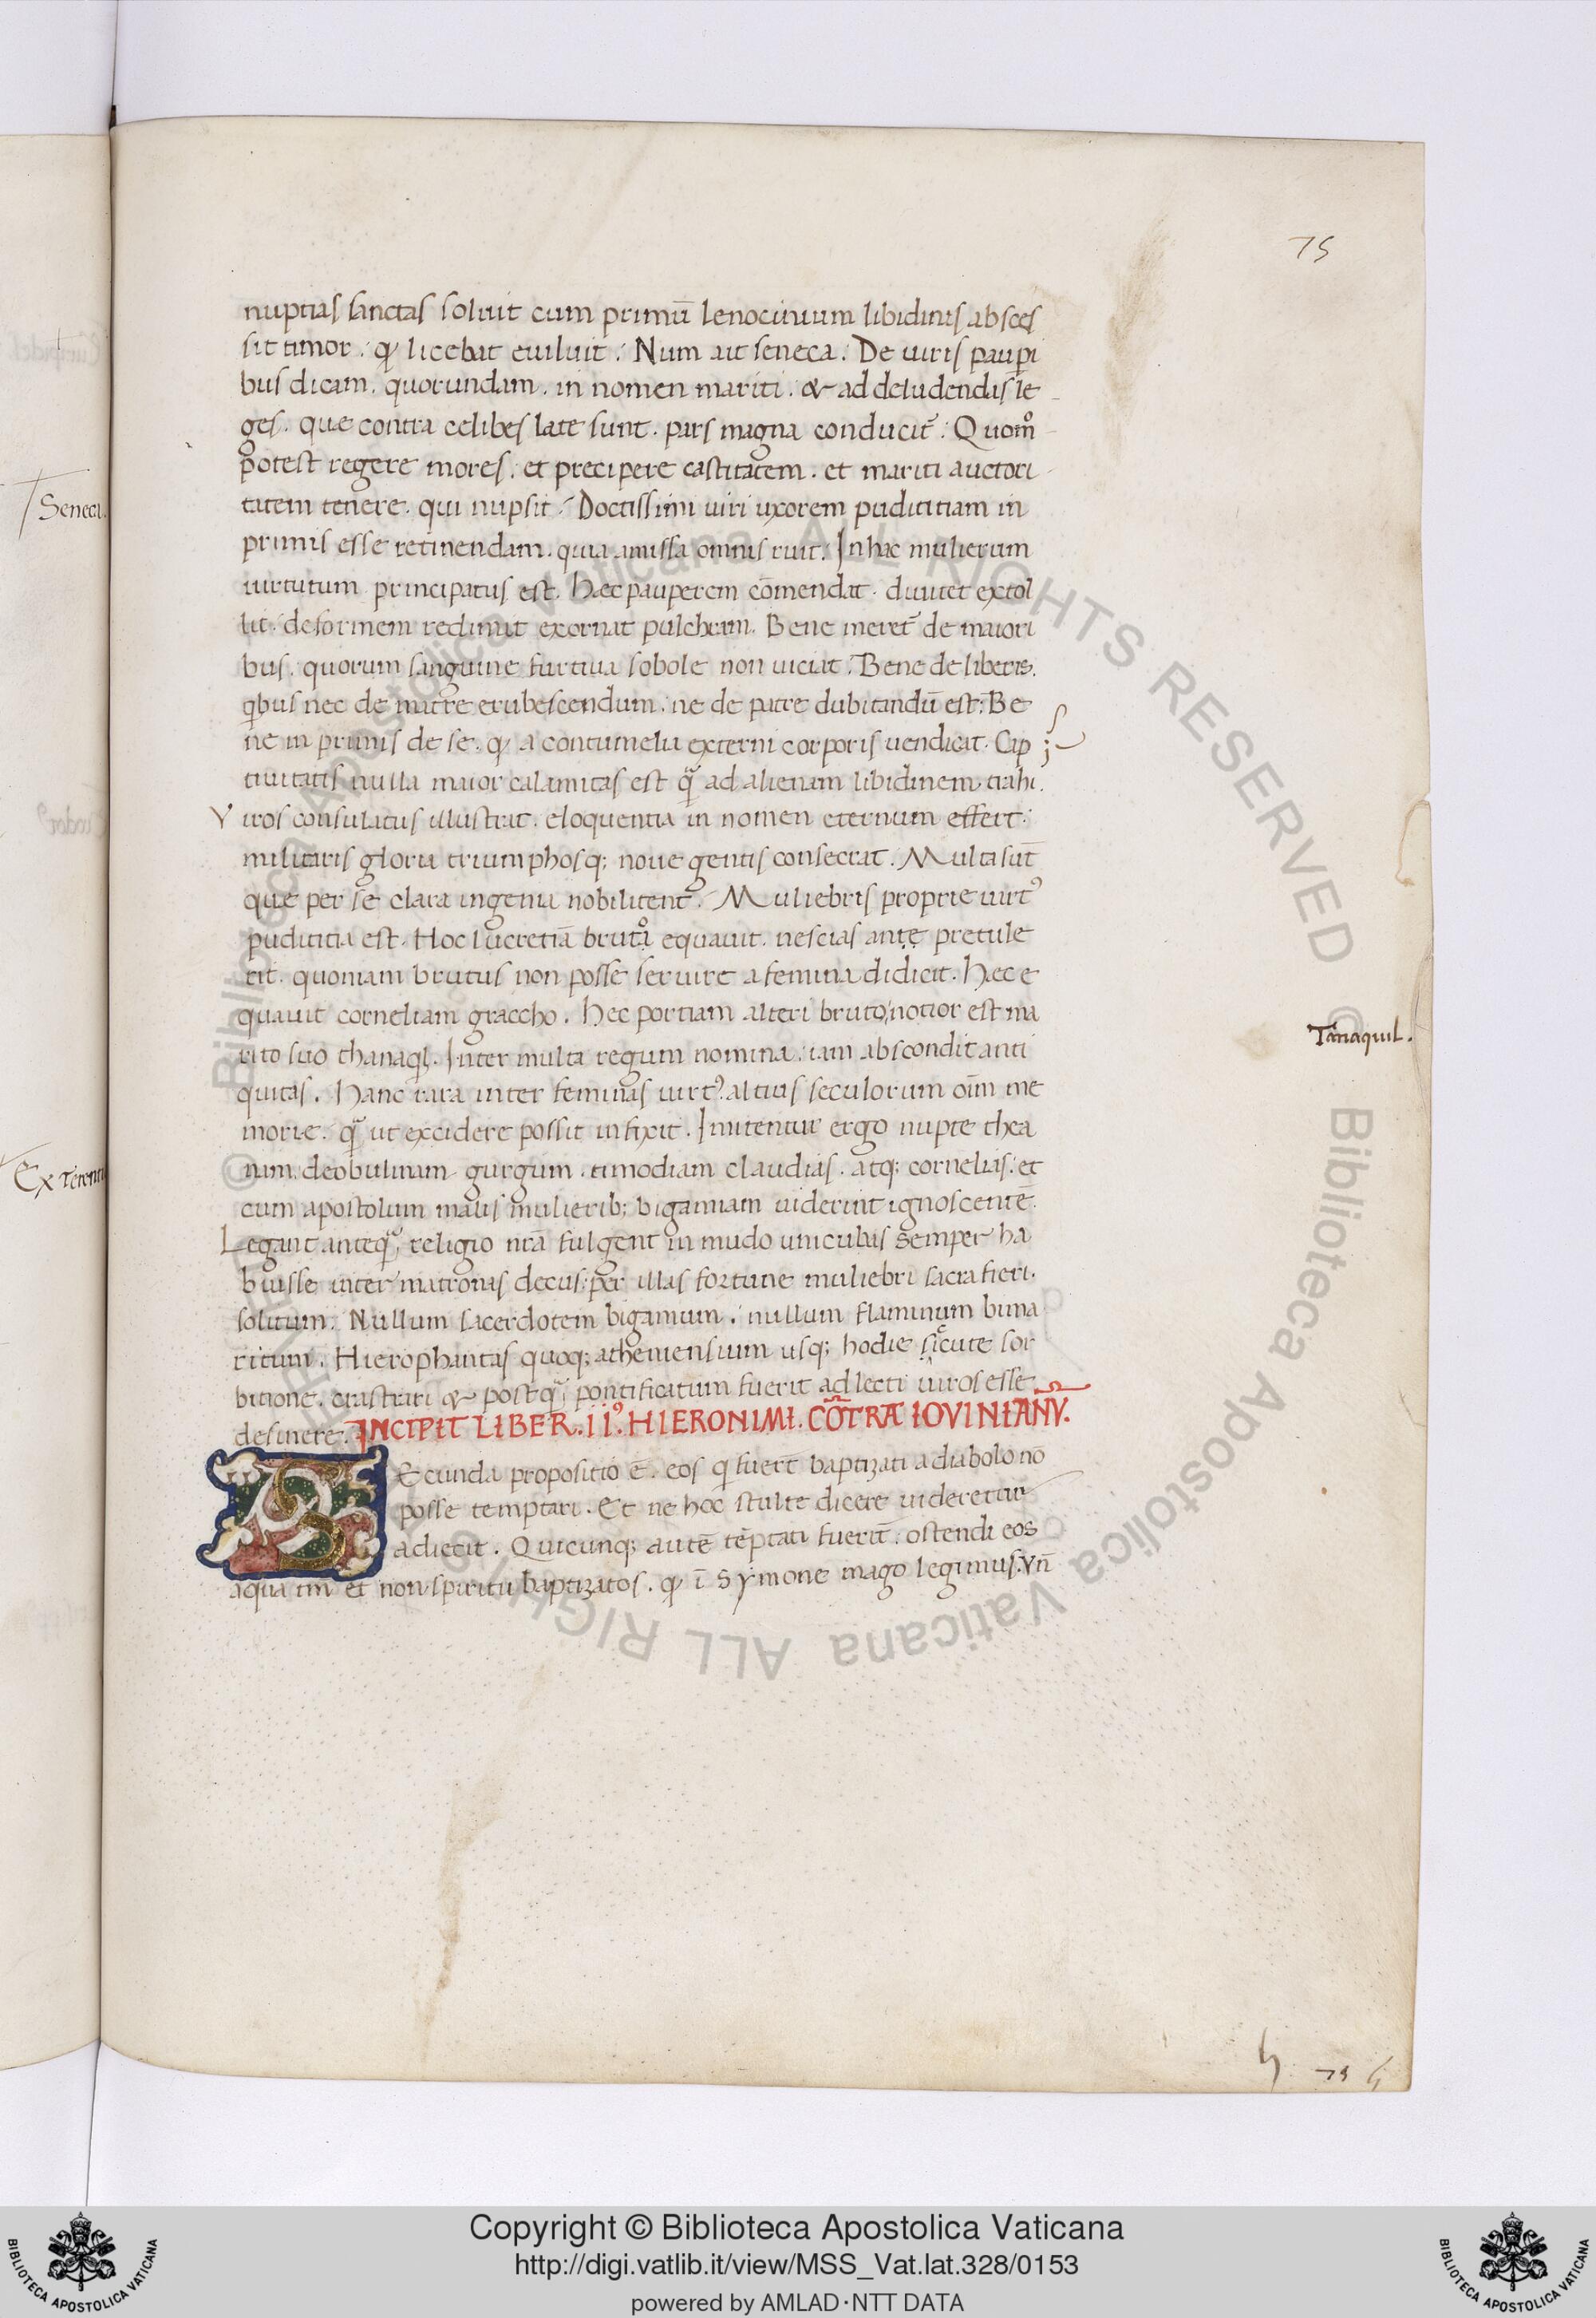 75
nuptias sanctas soluit cum primū lenocinium libidinis absces
sit timor. qđ licebat euiluit. Num ait seneca. De uiris paup̄i
bus dicam. quorundam. in nomen mariti. & ad deludendas le
ges. que contra celibes late sunt. pars magna conducit̄. Quom̊
potest regere mores. et precipere castitatem. et mariti auctori
tatem tenere. qui nupsit. Doctissimi uiri uxorem pudicitiam in
primis esse retinendam. quia amissa omnis ruit. In hac mulierum
uirtutum principatus est. Hec pauperem cōmendat. diuitet extol
lit. deformem redimit exornat pulchram. Bene meret̄ de maiori
bus. quorum sanguine furtiua sobole non uiciat. Bene de liberis.
qbus nec de matre erubescendum. ne de patre dubitandū est. Be
ne in primis de se. qđ a contumelia externi corporis uendicat. Cap
tiuitatis nulla maior calamitas est q̄ ad alienam libidinem trahi.
Viros consulatus illustrat. eloquentia in nomen eternum effert.
militaris gloria triumphosq; noue gentis consecrat. Multa sūt
que per se clara ingenia nobilitent. Muliebris proprie uirtꝰ
pudicitia est. Hoc lucretiā bruto equauit. nescias ante pretule
rit. quoniam brutus non posse seruire a femina didicit. Hec e
quauit corneliam graccho. Hec portiam alteri bruto notior est ma
rito suo thanaql. Inter multa regum nomina. iam abscondit anti
quitas. Hanc rara inter feminas uirtꝰ. altius seculorum oīm me
morie. q̄ ut excidere possit infixit. Imitentur ergo nupte thea
nam. deobulinam gurgum. timodiam claudias. atq; cornelias. et
cum apostolum malis mulierib; bigamiam uiderint ignoscentē.
Legant anteq̄ religio nr̄a fulgent in mudo unicubas semper ha
buisse inter matronas decus. per illas fortune muliebri sacra fieri.
solitum. Nullum sacerdotem bigamum. nullum flaminum bima
ritum. Hierophantas quoq; atheniensium usq; hodie sicute sor
bitione. crastrari & postq̄ pontificatum fuerit adlecti uiros esse
desinere. INCIPIT LIBER. IIꝰ. HIERONIMI. CŌTRA IOVINIANV̄.
Secunda propositio ē. eos q fuerīt baptizati a diabolo nō
posse temptari. Et ne hoc stulte dicere uideretur
adiecit. Quicunq; autē tēptati fuerīt. ostendi eos
aqua tm̄ et non spiritu baptizatos. qđ ī Symone mago legimus. Vn̄
Seneca.
Tanaquil.
75
Copyright © Biblioteca Apostolica Vaticana
http://digi.vatlib.it/view/MSS_Vat.lat.328/0153
powered by AMLAD·NTT DATA
BIBLIOTECA APOSTOLICA VATICANA
BIBLIOTECA APOSTOLICA VATICANA
© Biblioteca Apostolica Vaticana ALL RIGHTS RESERVED © Biblioteca Apostolica Vaticana ALL RIGHTS RESERVED